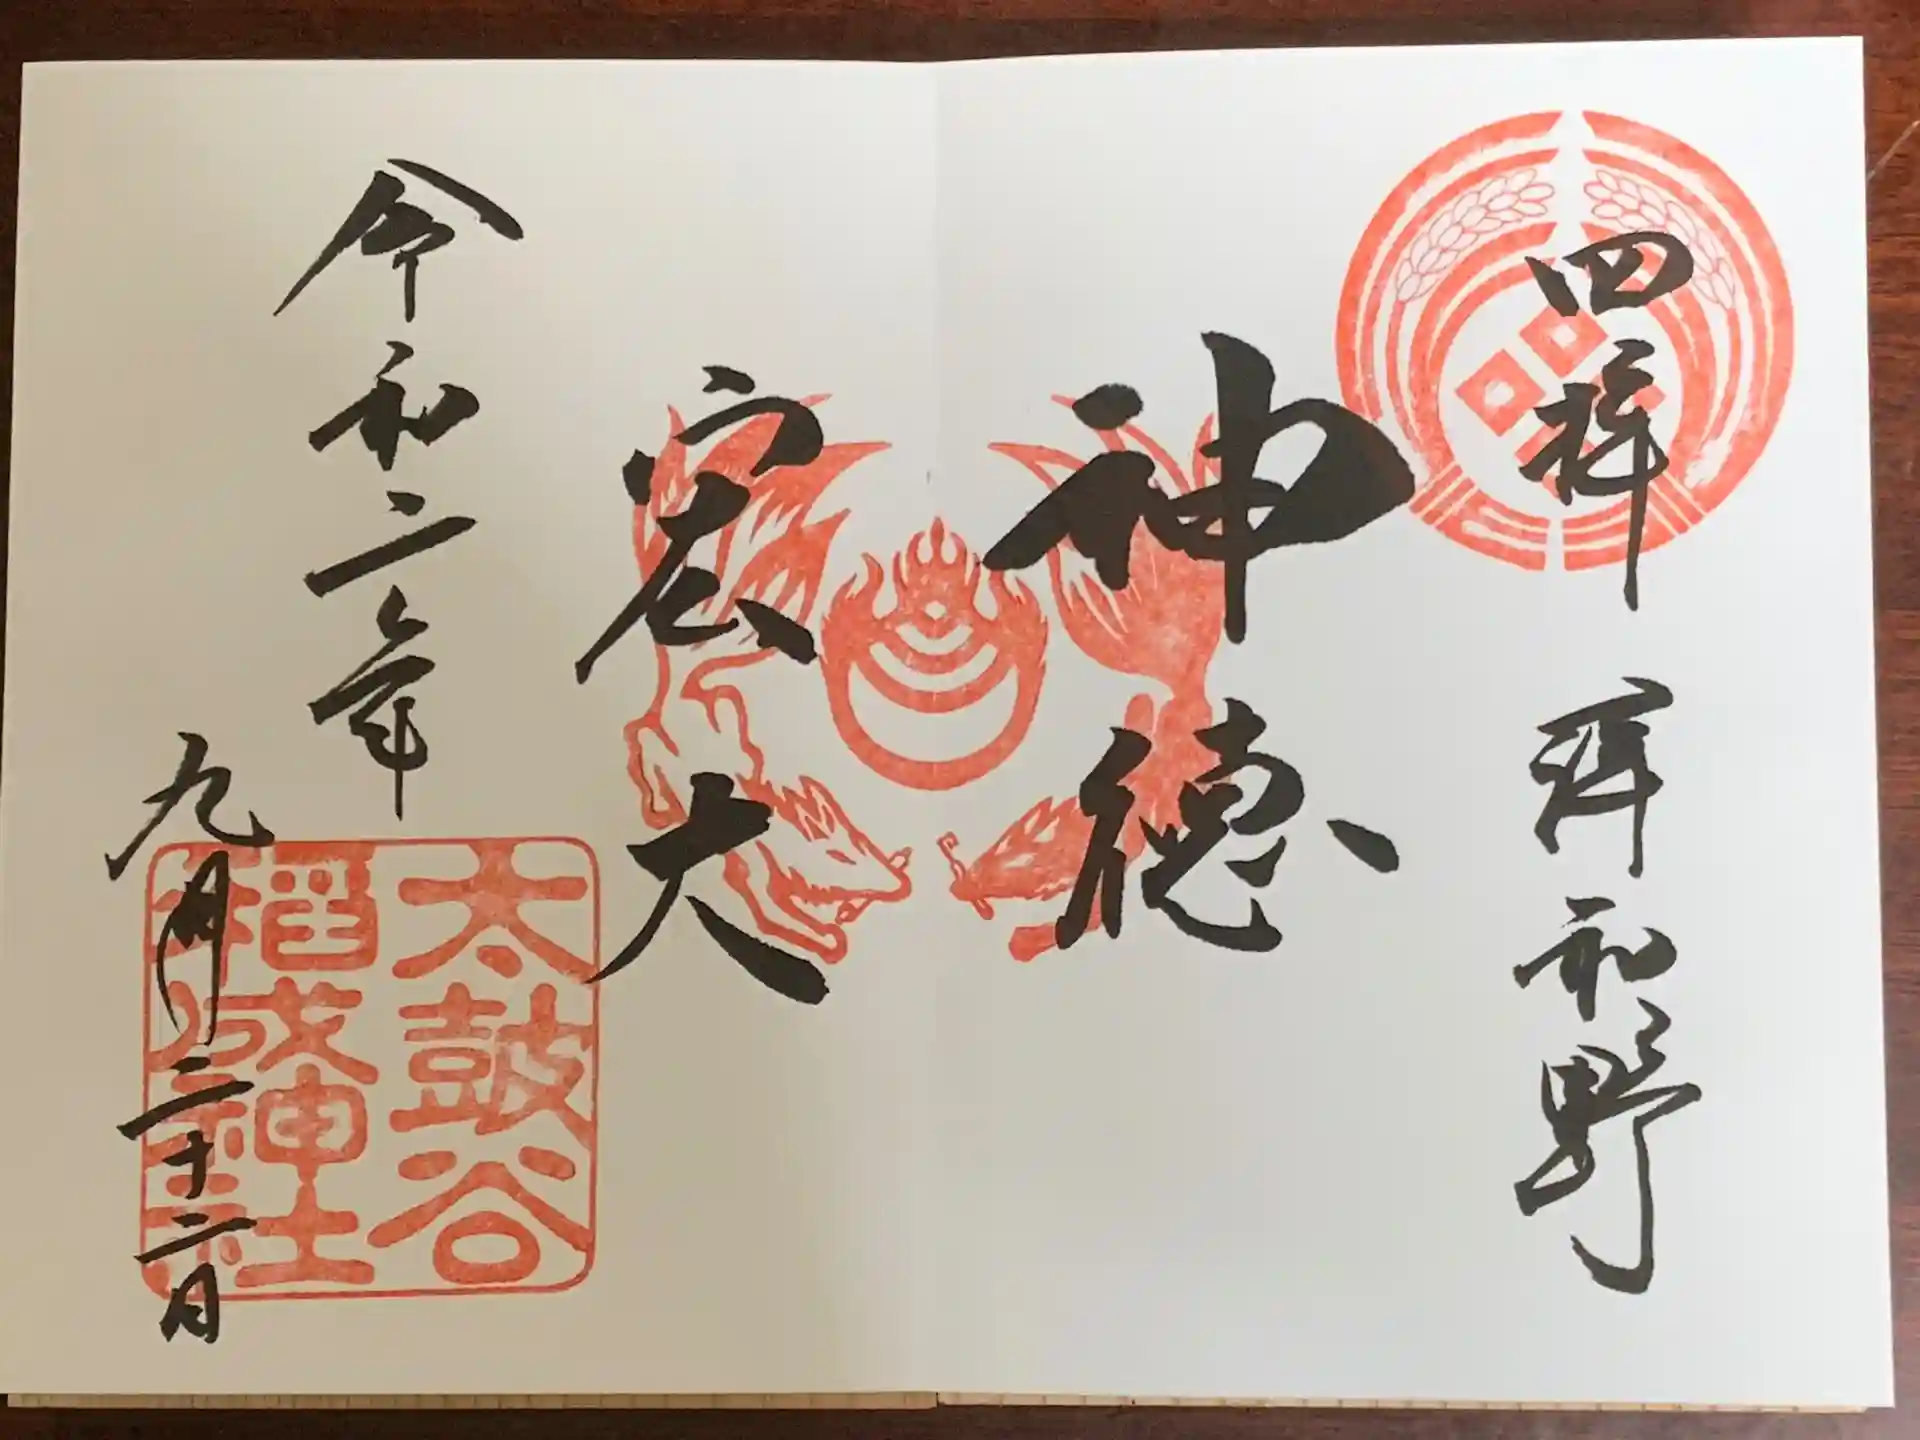 四拝 津和野
神徳
宏大
令和二年
九月二十二日
太皷谷
稲成神社